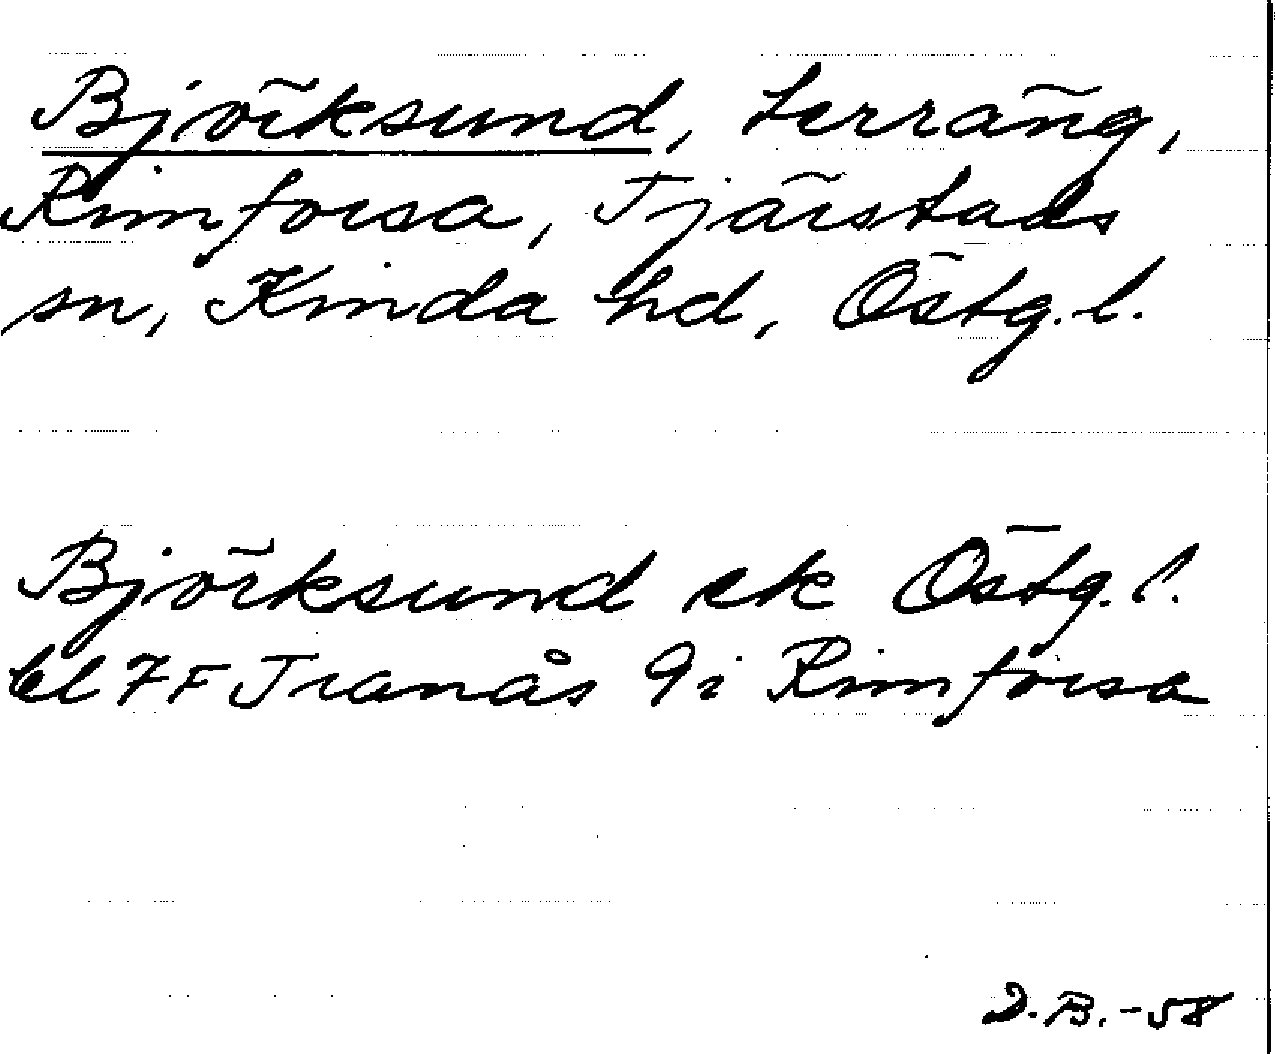 Björksund, terräng,
Rimforsa, Tjärstads
sn, Kinda hd, Östg.l.
Björksund ek Östg.l.
bl 7F Tranås 9i Rimforsa
D.B.-58